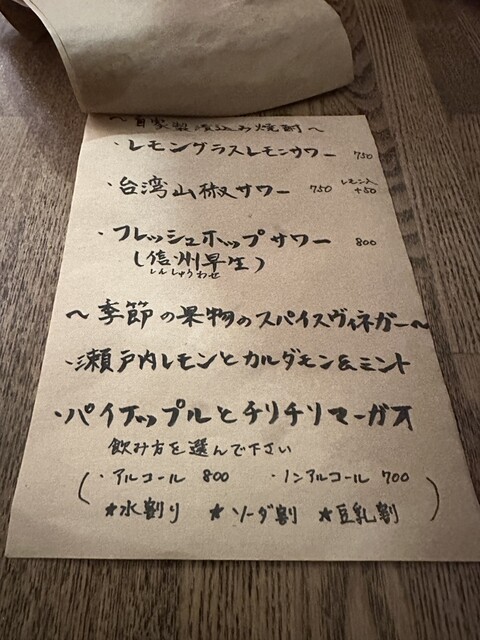 〜自家製漬込み焼酎〜
・レモングラスレモンサワー 750
・台湾山椒サワー 750 レモン入 +50
・フレッシュホップサワー 800
(信州早生)
しんしゅうわせ
〜季節の果物のスパイスヴィネガー〜
・瀬戸内レモンとカルダモン&ミント
・パイナップルとチリチリマーガオ
飲み方を選んで下さい
(・アルコール 800 ・ノンアルコール 700
★水割り ★ソーダ割 ★豆乳割)